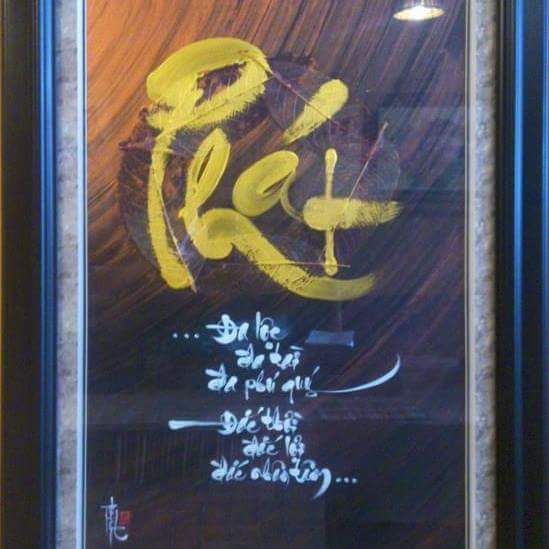 Phát
... Đa lộc
đa tài
đa phú quý
Đắc thời
đắc lợi
đắc nhân tâm ...